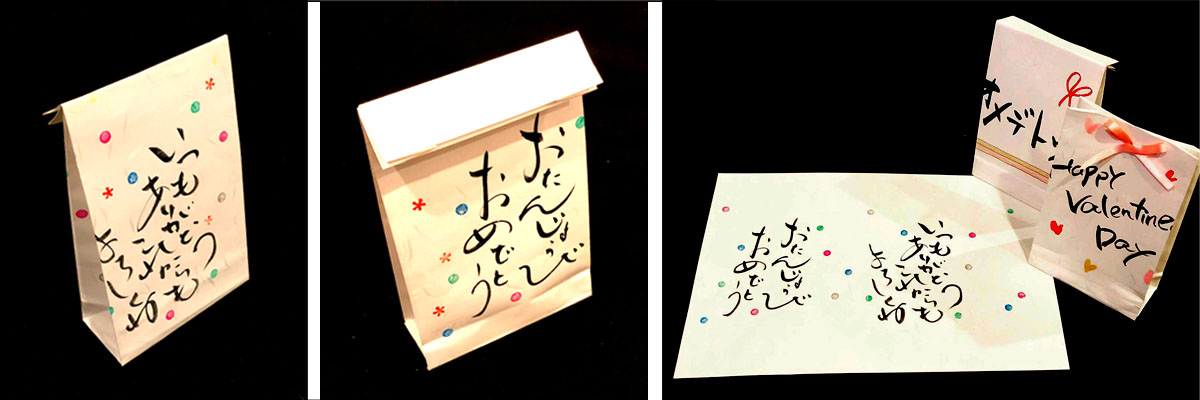 いつも
ありがとう
これからも
よろしくね
おたんじょうび
おめでとう
おたんじょうび
おめでとう
いつも
ありがとう
これからも
よろしくね
オメデト
Happy
Valentine
Day